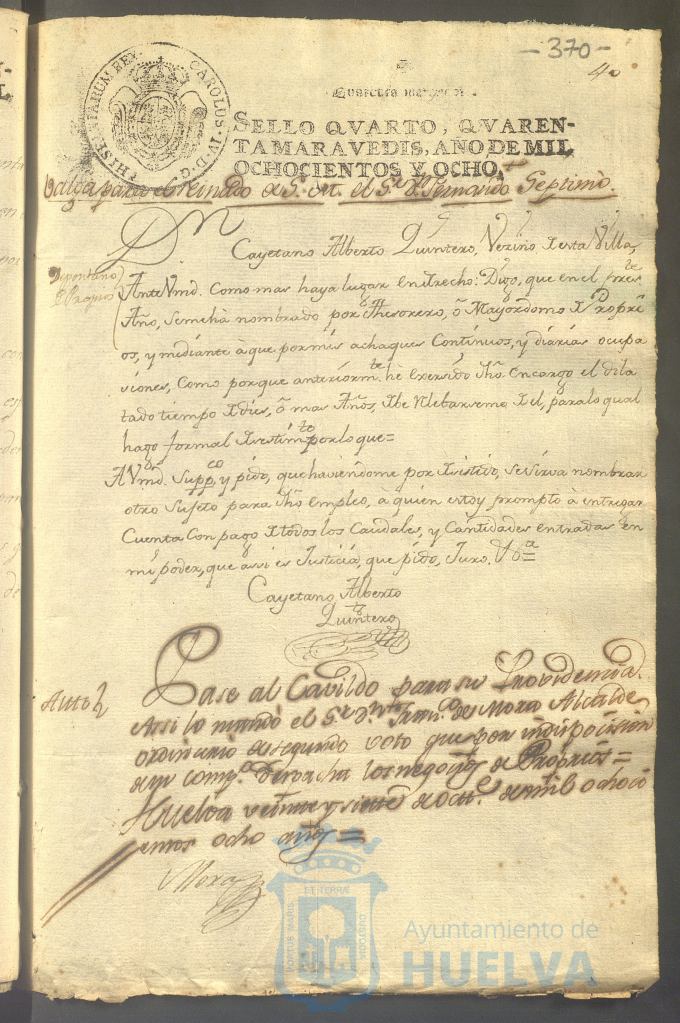 - 370 -
40
HISPANIARUM REX. CAROLUS. IV. D. G.
Quarenta maravedis.
SELLO QVARTO, QVAREN-
TA MARAVEDIS, AÑO DE MIL
OCHOCIENTOS Y OCHO.
Valga para el Reinado de S. M. el Sr. Dn. Fernando Septimo.
Dn Cayetano Alberto Quintero, Vezino desta Villa,
Ante Vmd. Como mas haya lugar en drecho: Digo, que en el preste
Año, se me hà nombrado por Thesorero, ò Mayordomo de Propri
os, y mediante à que por mis achaques Continuos, y diarias ocupa
siones, Como porque anteriormte. hè exersido dho. Encargo el dila
tado tiempo de dies, ò mas Años, debe relebarseme del, para lo qual
hago formal desistimto por lo que=
A Vmd. Suppco, y pido, que haviendome por desistido, se sirva nombrar
otro Sujeto para dho empleo, à quien estoy prompto à entregar
Cuenta Con pago de todos los Caudales, y Cantidades entradas en
mi poder, que assi es Justicia, que pido, Juro. Va=
Cayetano Alberto
Quintero
Auto
Pase al Cavildo para su Providencia.
Assi lo mandó el Sr. Dn. Franco. de Mora Alcalde
ordinario de segundo voto que por indisposicion
de su compo. despacha los negocios de Proprios=
Huelva veinte y siete de octe. de mil ochoci
entos ocho años=
Mora
PORTUS MARIS
ET TERRÆ
CUSTODIA
Ayuntamiento de
HUELVA